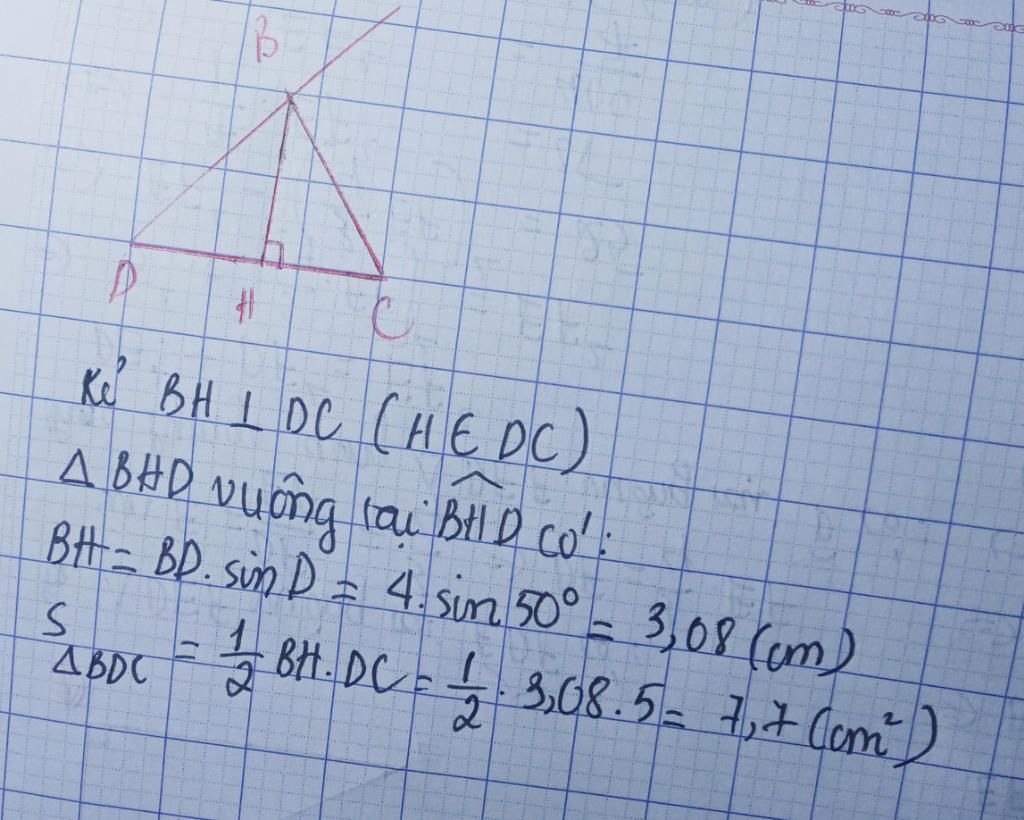 B
D
H
C
Kẻ BH ⊥ DC (H ∈ DC)
Δ BHD vuông tại \widehat{BHD} có:
BH = BD. sin D = 4. sin 50° = 3,08 (cm)
S ΔBDC = 1/2 BH. DC = 1/2 . 3,08. 5 = 7,7 (cm²)